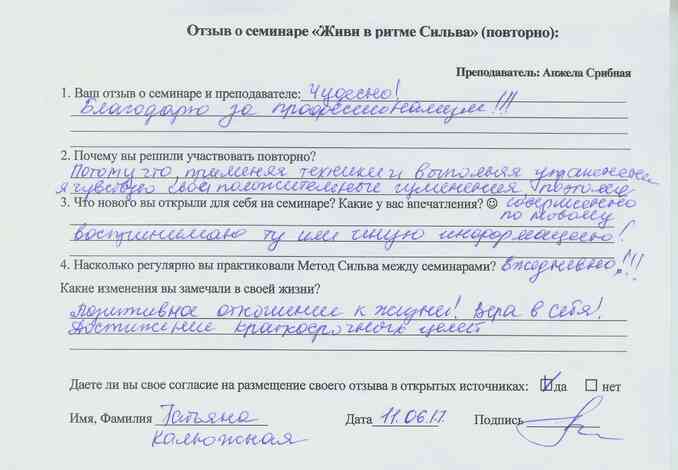 Отзыв о семинаре «Живи в ритме Сильва» (повторно):
Преподаватель: Анжела Срибная
1. Ваш отзыв о семинаре и преподавателе: Чудесно!
Благодарю за профессионализм!!!
2. Почему вы решили участвовать повторно?
Потому что, применяя техники и выполняя упражнения
я чувствую свои положительные изменения, поэтому
3. Что нового вы открыли для себя на семинаре? Какие у вас впечатления? ☺ совершенно
по новому
воспринимаю ту или иную информацию!
4. Насколько регулярно вы практиковали Метод Сильва между семинарами? ежедневно!!!
Какие изменения вы замечали в своей жизни?
Позитивное отношение к жизни! Вера в себя!
Достижение краткосрочных целей
Даете ли вы свое согласие на размещение своего отзыва в открытых источниках: ☑ да ☐ нет
Имя, Фамилия Татьяна Дата 11.06.17. Подпись
Калюжная